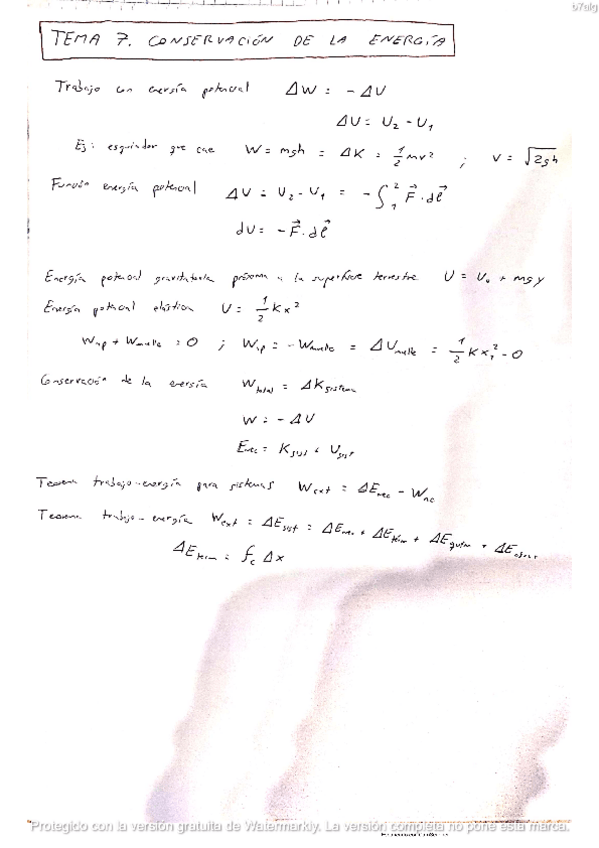 b7alg
TEMA 7. CONSERVACIÓN DE LA ENERGÍA
Trabajo con energía potencial ΔW = -ΔU
ΔU = U₂ - U₁
Ej: esquiador que cae W = mgh = ΔK = 1/2 mv² ; v = √2gh
Función energía potencial ΔU = U₂ - U₁ = -∫₁² F⃗·dℓ⃗
dU = -F⃗·dℓ⃗
Energía potencial gravitatoria próxima a la superficie terrestre U = U₀ + mgy
Energía potencial elástica U = 1/2 Kx²
W_ap + W_muelle = 0 ; W_ap = -W_muelle = ΔU_muelle = 1/2 Kx₁² - 0
Conservación de la energía W_total = ΔK_sistema
W = -ΔU
E_mec = K_sist + U_sist
Teorema trabajo-energía para sistemas W_ext = ΔE_mec - W_nc
Teorema trabajo-energía W_ext = ΔE_sist = ΔE_mec + ΔE_térm + ΔE_quím +
ΔE_term = f_c Δx
Protegido con la versión gratuita de Watermarkly. La versión completa no pone esta marca.